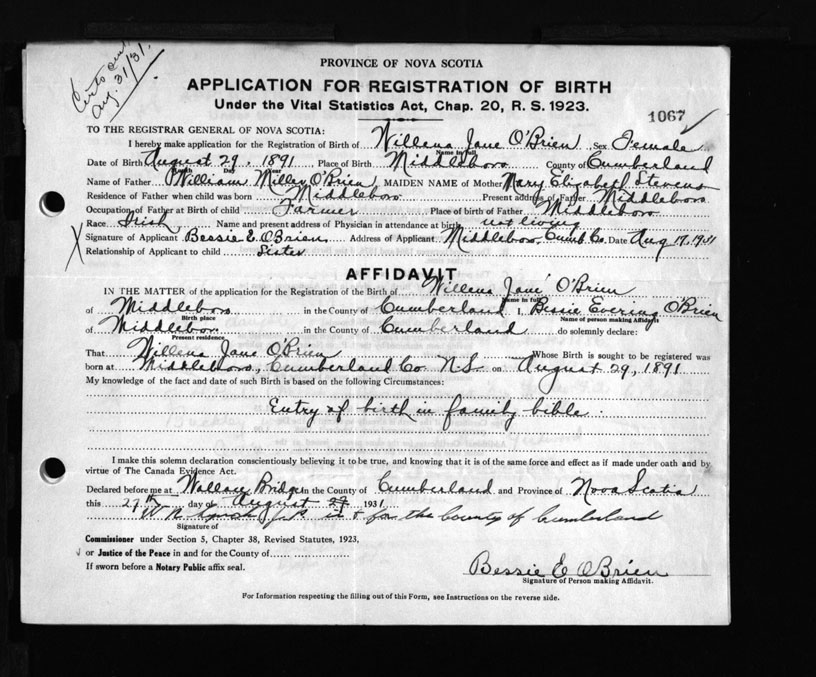 Certs sent
Aug. 31/31.
PROVINCE OF NOVA SCOTIA
APPLICATION FOR REGISTRATION OF BIRTH
Under the Vital Statistics Act, Chap. 20, R. S. 1923.
1067
TO THE REGISTRAR GENERAL OF NOVA SCOTIA:
I hereby make application for the Registration of Birth of Willena Jane O'Brien Sex Female
Name in full
Date of Birth August 29, 1891 Place of Birth Middleboro County of Cumberland
Month Day Year
Name of Father William Miller O'Brien MAIDEN NAME of Mother Mary Elizabeth Stevens
Residence of Father when child was born Middleboro Present address of Father Middleboro
Occupation of Father at Birth of child Farmer Place of birth of Father Middleboro
Race Irish Name and present address of Physician in attendance at birth not living
X Signature of Applicant Bessie E. O'Brien Address of Applicant Middleboro, Cumb. Co. Date Aug 17, 1931
Relationship of Applicant to child Sister
AFFIDAVIT
IN THE MATTER of the application for the Registration of the Birth of Willena Jane O'Brien
Name in full
of Middleboro in the County of Cumberland I, Bessie O'Brien
Birth place Name of person making Affidavit
of Middleboro in the County of Cumberland do solemnly declare:
Present residence
That Willena Jane O'Brien Whose Birth is sought to be registered was
born at Middleboro, Cumberland Co. N.S. on August 29, 1891
My knowledge of the fact and date of such Birth is based on the following Circumstances:
Entry of birth in family bible.
I make this solemn declaration conscientiously believing it to be true, and knowing that it is of the same force and effect as if made under oath and by
virtue of The Canada Evidence Act.
Declared before me at Wallace Bridge in the County of Cumberland and Province of Nova Scotia
this 29th day of August 1931
J.P. in & for the County of Cumberland
Signature of
Commissioner under Section 5, Chapter 38, Revised Statutes, 1923,
or Justice of the Peace in and for the County of
If sworn before a Notary Public affix seal.
Bessie E O'Brien
Signature of Person making Affidavit.
For Information respecting the filling out of this Form, see Instructions on the reverse side.